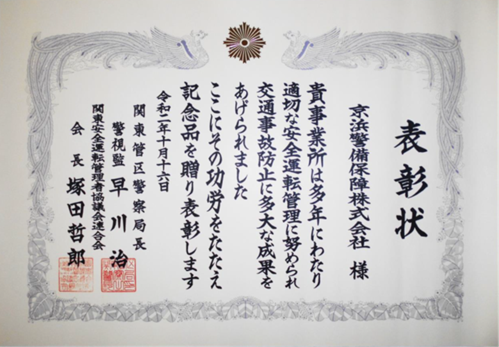 表彰状
京浜警備保障株式会社 様
貴事業所は多年にわたり
適切な安全運転管理に努められ
交通事故防止に多大な成果を
あげられました
ここにその功労をたたえ
記念品を贈り表彰します
令和二年十月十六日
関東管区警察局長
警視監 早川 治
関東安全運転管理者協議会連合会
会長 塚田哲郎